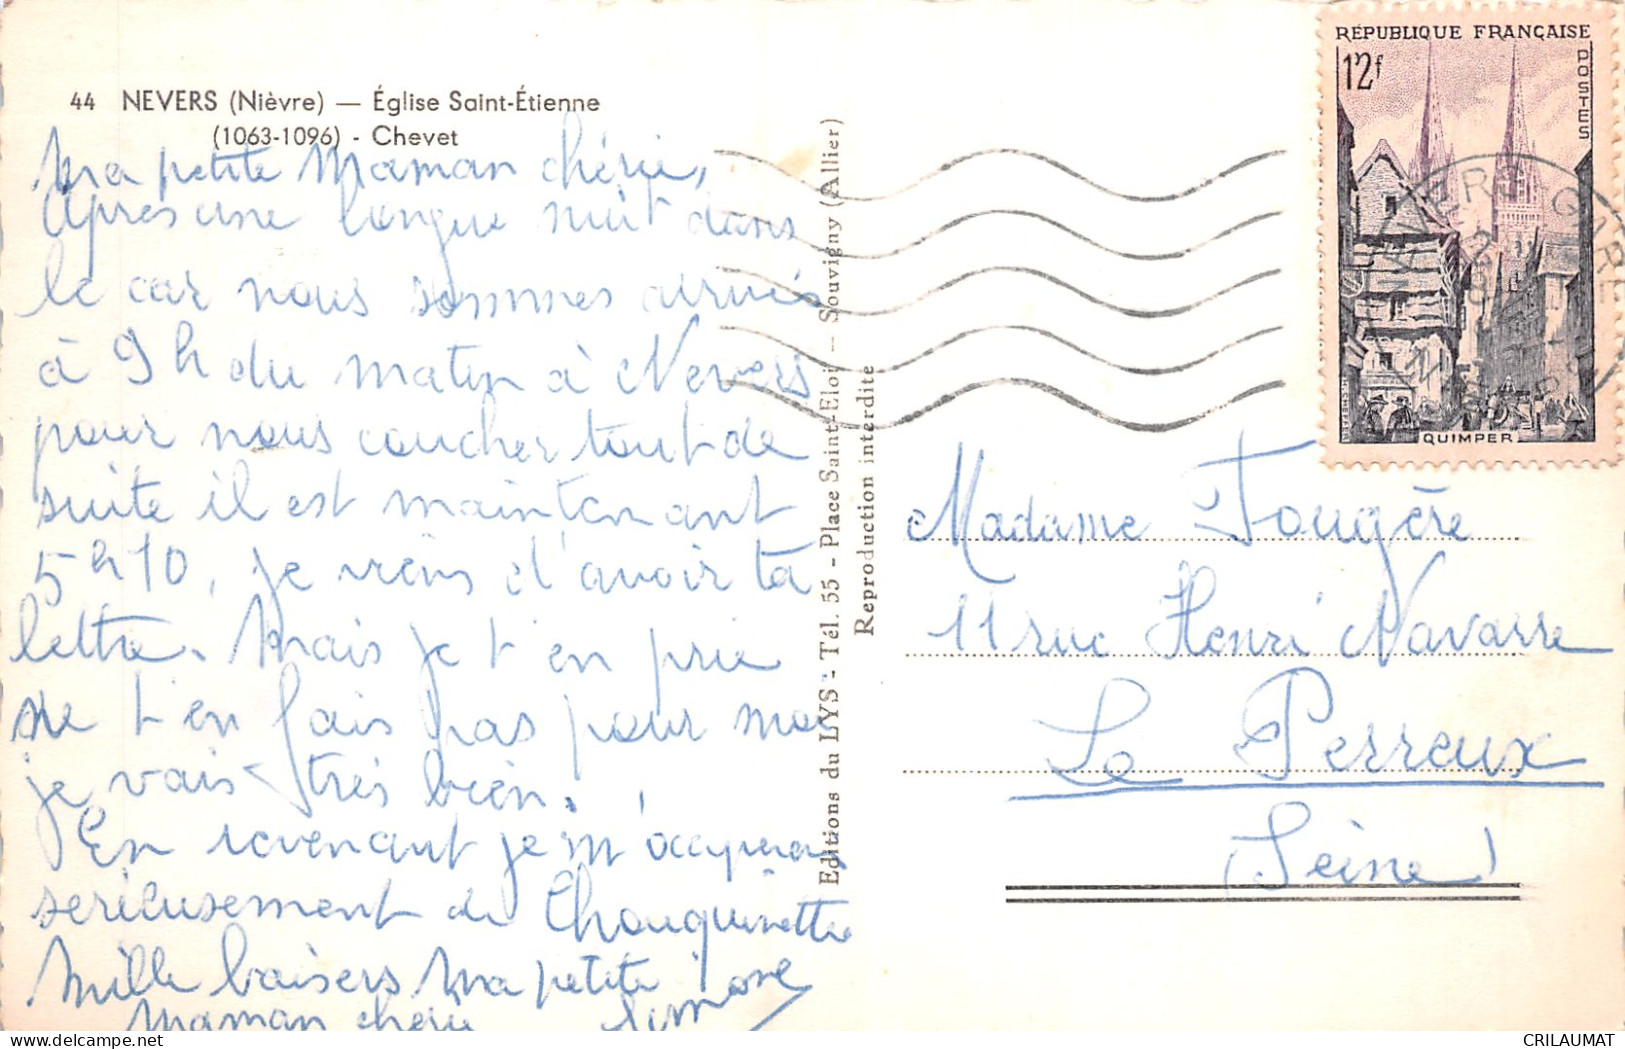 44 NEVERS (Nièvre) — Église Saint-Étienne
(1063-1096) - Chevet
Ma petite Maman chérie,
Après une longue nuit dans
le car nous sommes arrivés
à 9h du matin à Nevers
pour nous coucher tout de
suite il est maintenant
5h10, je viens d'avoir ta
lettre. Mais je t'en prie
ne t'en fais pas pour moi
je vais très bien.
En revenant je m'occuperai
serieusement de Chouquinette
Mille baisers Ma petite
Maman chérie Simone
Editions du LYS - Tél. 55 - Place Saint-Eloi — Souvigny (Allier)
Reproduction interdite
RÉPUBLIQUE FRANÇAISE
12f
POSTES
QUIMPER
NEVERS GARE
Madame Fougère
11 rue Henri Navarre
Le Perreux
(Seine)
CRILAUMAT